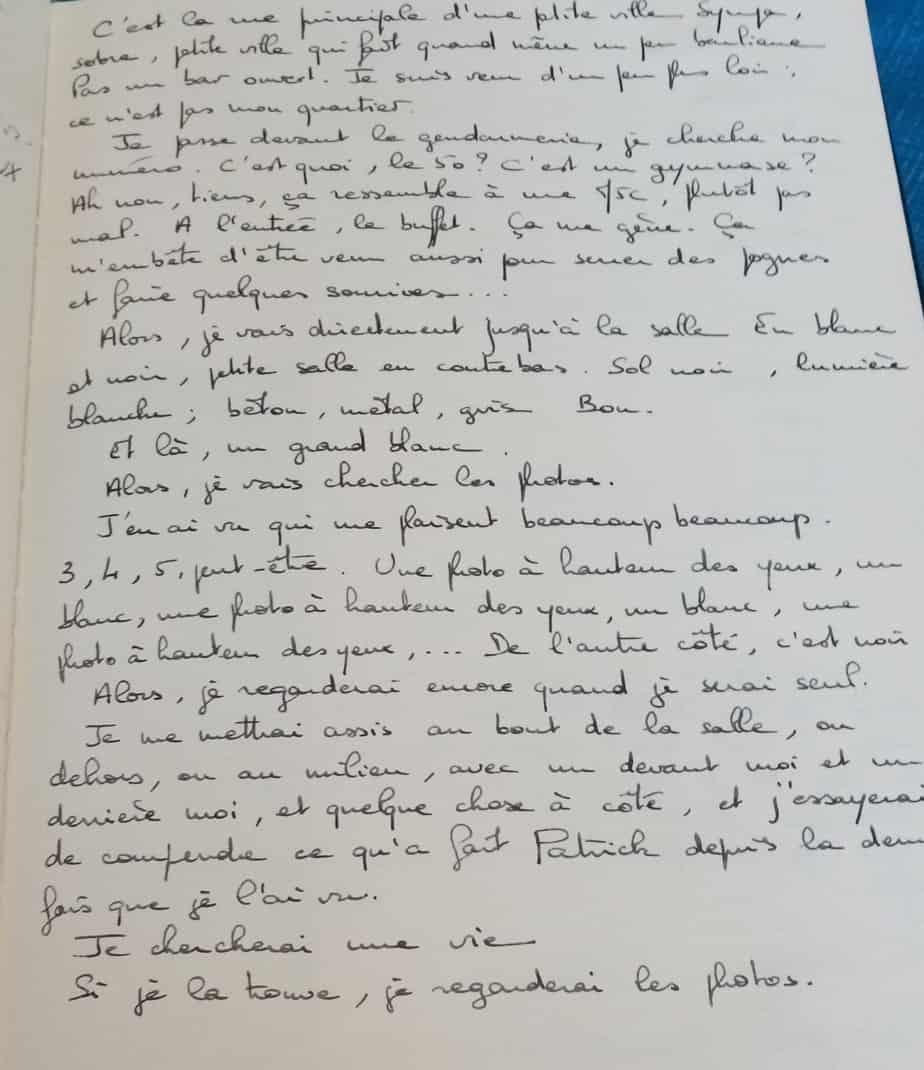 C'est la rue principale d'une petite ville sympa,
sobre, petite ville qui fait quand même un peu banlieue
Pas un bar ouvert. Je suis venu d'un peu plus loin :
ce n'est pas mon quartier.
Je passe devant la gendarmerie, je cherche mon
numéro. C'est quoi, le 50 ? C'est un gymnase ?
Ah non, tiens, ça ressemble à une, plutôt pas
mal. A l'entrée, le buffet. Ça me gêne. Ça
m'embête d'être venu aussi pour serrer des pognes
et faire quelques sourires...
Alors, je vais directement jusqu'à la salle En blanc
et noir, petite salle en contrebas. Sol noir, lumière
blanche ; béton, métal, gris Bon.
Et là, un grand blanc.
Alors, je vais chercher les photos.
J'en ai vu qui me plaisent beaucoup beaucoup.
3, 4, 5, peut-être. Une photo à hauteur des yeux, un
blanc, une photo à hauteur des yeux, un blanc, une
photo à hauteur des yeux,... De l'autre côté, c'est noir
Alors, je regarderai encore quand je serai seul.
Je me mettrai assis au bout de la salle, ou
dehors, ou au milieu, avec un devant moi et un
derrière moi, et quelque chose à côté, et j'essayerai
de comprendre ce qu'a fait Patrick depuis la dern
fois que je l'ai vu.
Je chercherai une vie
Si je la trouve, je regarderai les photos.